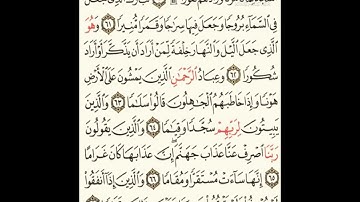 فِي ٱلسَّمَآءِ بُرُوجٗا وَجَعَلَ فِيهَا سِرَٰجٗا وَقَمَرٗا مُّنِيرٗا ٦١ وَهُوَ
ٱلَّذِي جَعَلَ ٱلَّيۡلَ وَٱلنَّهَارَ خِلۡفَةٗ لِّمَنۡ أَرَادَ أَن يَذَّكَّرَ أَوۡ أَرَادَ
شُكُورٗا ٦٢ وَعِبَادُ ٱلرَّحۡمَٰنِ ٱلَّذِينَ يَمۡشُونَ عَلَى ٱلۡأَرۡضِ
هَوۡنٗا وَإِذَا خَاطَبَهُمُ ٱلۡجَٰهِلُونَ قَالُواْ سَلَٰمٗا ٦٣ وَٱلَّذِينَ
يَبِيتُونَ لِرَبِّهِمۡ سُجَّدٗا وَقِيَٰمٗا ٦٤ وَٱلَّذِينَ يَقُولُونَ
رَبَّنَا ٱصۡرِفۡ عَنَّا عَذَابَ جَهَنَّمَۖ إِنَّ عَذَابَهَا كَانَ غَرَامًا
٦٥ إِنَّهَا سَآءَتۡ مُسۡتَقَرّٗا وَمُقَامٗا ٦٦ وَٱلَّذِينَ إِذَآ أَنفَقُواْ